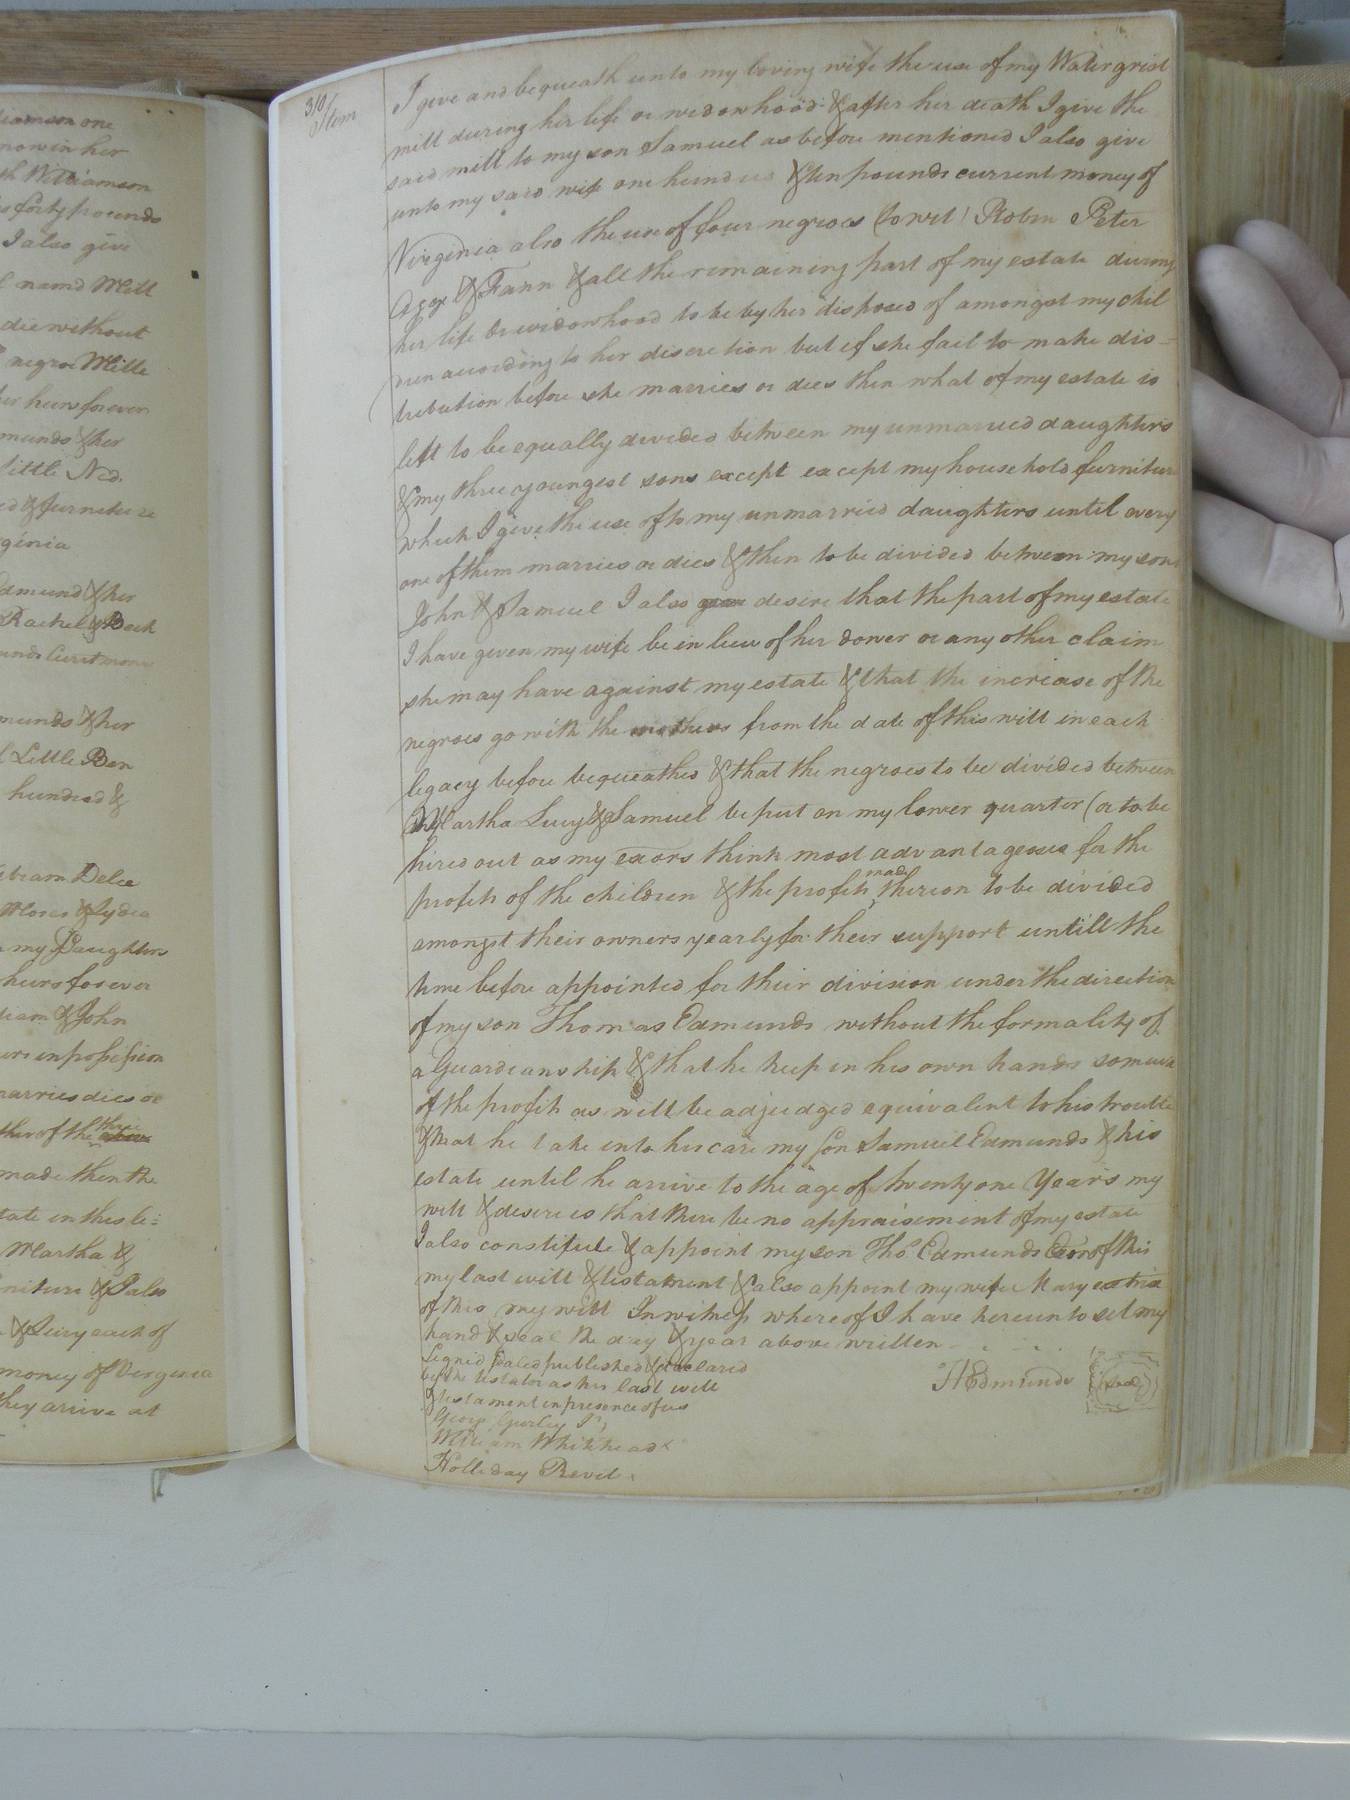 liamson one
now in her
th Williamson
is forty pounds
I also give
l namd Mill
die without
negroe Mille
her heirs forever
munds & her
little Ned.
ed & furniture
ginia
Edmund & her
Rachel & Beck
unds Curt mon
munds & her
Little Ben
hundred &
Abram Delce
Moses & Lydia
my Daughters
heirs forever
liam & John
urs in possession
marries dies or
ther of the three
made then the
tate in this le:
Martha &
niture & I also
& Lucy each of
money of Virginia
they arrive at
310
Item
I give and bequeath unto my loving wife the use of my Water grist
mill during her life or widowhood & after her death I give the
said mill to my son Samuel as before mentioned I also give
unto my said wife one hundred & ten pounds current money of
Virginia also the use of four negroes (to wit) Robin Peter
Aggy & Fann & all the remaining part of my estate during
her life or widowhood to be by her disposed of amongst my chil
dren according to her discretion but if she fail to make dis-
tribution before she marries or dies then what of my estate is
left to be equally divided between my unmarried daughters
& my three youngest sons except except my household furniture
which I give the use of to my unmarried daughters until every
one of them marries or dies & then to be divided between my sons
John & Samuel I also desire that the part of my estate
I have given my wife be in lieu of her dower or any other claim
she may have against my estate & that the increase of the
negroes go with the mothers from the date of this will in each
legacy before bequeathed & that the negroes to be divided between
Martha Lucy & Samuel be put on my lower quarter (or to be
hired out as my exors think most advantageous for the
profits of the children & the profits made thereon to be divided
amongst their owners yearly for their support untill the
time before appointed for their division under the direction
of my son Thomas Edmunds without the formality of
a Guardianship & that he keep in his own hands so much
of the profits as will be adjudged equivalent to his trouble
& that he take into his care my son Samuel Edmunds & his
estate until he arrive to the age of twenty one Years my
will & desire is that there be no appraisement of my estate
I also constitute & appoint my son Thos Edmunds Exor of this
my last will & testament & also appoint my wife Mary extrix
of this my will In witness whereof I have hereunto set my
hand & seal the day & year above written
Signed Sealed published & declared
by the testator as his last will
& testament in presence of us
H Edmunds (seal)
George Gurley Jr,
William Whitehead
Holliday Revel